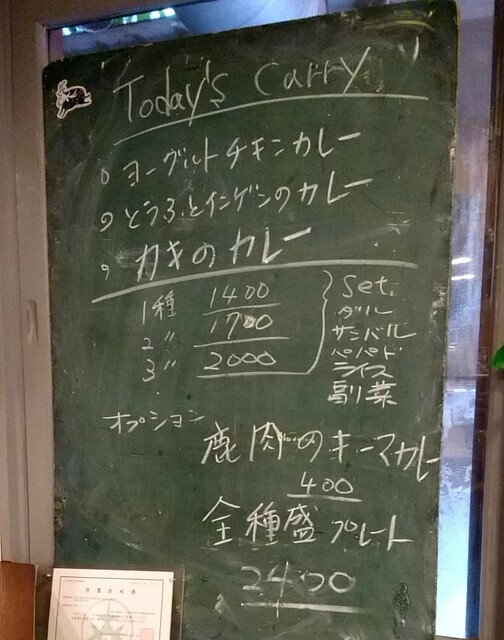 Today's Carry
ヨーグルトチキンカレー
とうふとインゲンのカレー
カキのカレー
1種 1400
2〃 1700
3〃 2000
Set.
ダル
サンバル
パパド
ライス
副菜
オプション
鹿肉のキーマカレー
400
全種盛プレート
2400
営業許可書